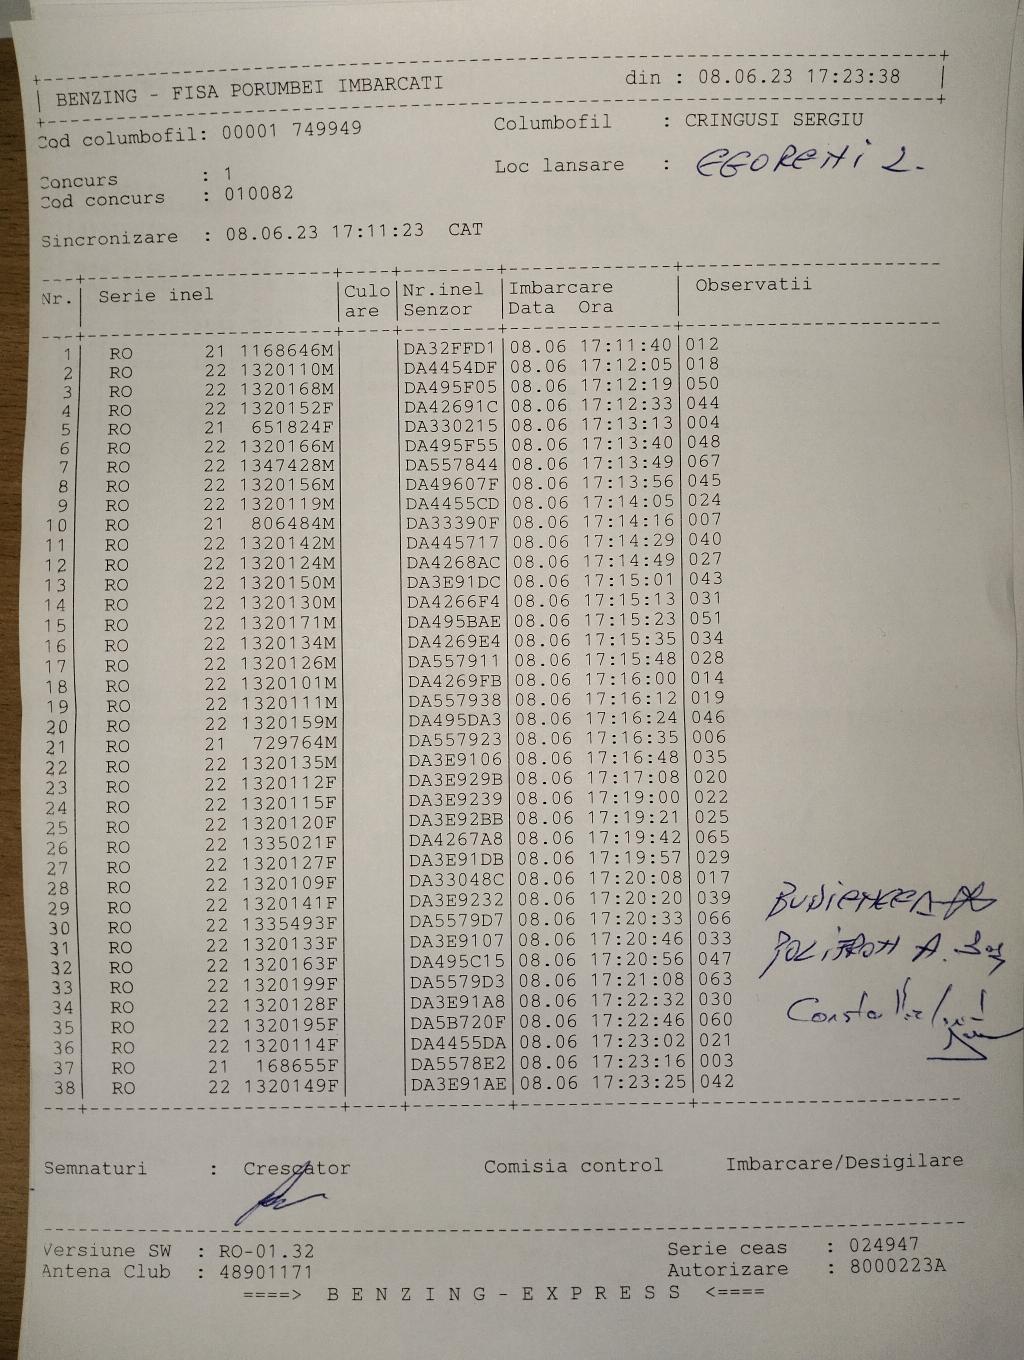 BENZING - FISA PORUMBEI IMBARCATI din : 08.06.23 17:23:38
Cod columbofil: 00001 749949 Columbofil : CRINGUSI SERGIU
Concurs : 1 Loc lansare : EGORENI 2.
Cod concurs : 010082
Sincronizare : 08.06.23 17:11:23 CAT
Nr. Serie inel Culo Nr.inel Imbarcare Observatii
are Senzor Data Ora
1 RO 21 1168646M DA32FFD1 08.06 17:11:40 012
2 RO 22 1320110M DA4454DF 08.06 17:12:05 018
3 RO 22 1320168M DA495F05 08.06 17:12:19 050
4 RO 22 1320152F DA42691C 08.06 17:12:33 044
5 RO 21 651824F DA330215 08.06 17:13:13 004
6 RO 22 1320166M DA495F55 08.06 17:13:40 048
7 RO 22 1347428M DA557844 08.06 17:13:49 067
8 RO 22 1320156M DA49607F 08.06 17:13:56 045
9 RO 22 1320119M DA4455CD 08.06 17:14:05 024
10 RO 21 806484M DA33390F 08.06 17:14:16 007
11 RO 22 1320142M DA445717 08.06 17:14:29 040
12 RO 22 1320124M DA4268AC 08.06 17:14:49 027
13 RO 22 1320150M DA3E91DC 08.06 17:15:01 043
14 RO 22 1320130M DA4266F4 08.06 17:15:13 031
15 RO 22 1320171M DA495BAE 08.06 17:15:23 051
16 RO 22 1320134M DA4269E4 08.06 17:15:35 034
17 RO 22 1320126M DA557911 08.06 17:15:48 028
18 RO 22 1320101M DA4269FB 08.06 17:16:00 014
19 RO 22 1320111M DA557938 08.06 17:16:12 019
20 RO 22 1320159M DA495DA3 08.06 17:16:24 046
21 RO 21 729764M DA557923 08.06 17:16:35 006
22 RO 22 1320135M DA3E9106 08.06 17:16:48 035
23 RO 22 1320112F DA3E929B 08.06 17:17:08 020
24 RO 22 1320115F DA3E9239 08.06 17:19:00 022
25 RO 22 1320120F DA3E92BB 08.06 17:19:21 025
26 RO 22 1335021F DA4267A8 08.06 17:19:42 065
27 RO 22 1320127F DA3E91DB 08.06 17:19:57 029
28 RO 22 1320109F DA33048C 08.06 17:20:08 017
29 RO 22 1320141F DA3E9232 08.06 17:20:20 039
30 RO 22 1335493F DA5579D7 08.06 17:20:33 066
31 RO 22 1320133F DA3E9107 08.06 17:20:46 033
32 RO 22 1320163F DA495C15 08.06 17:20:56 047
33 RO 22 1320199F DA5579D3 08.06 17:21:08 063
34 RO 22 1320128F DA3E91A8 08.06 17:22:32 030
35 RO 22 1320195F DA5B720F 08.06 17:22:46 060
36 RO 22 1320114F DA4455DA 08.06 17:23:02 021
37 RO 21 168655F DA5578E2 08.06 17:23:16 003
38 RO 22 1320149F DA3E91AE 08.06 17:23:25 042
Semnaturi : Crescator Comisia control Imbarcare/Desigilare
Versiune SW : RO-01.32 Serie ceas : 024947
Antena Club : 48901171 Autorizare : 8000223A
====> B E N Z I N G - E X P R E S S <====